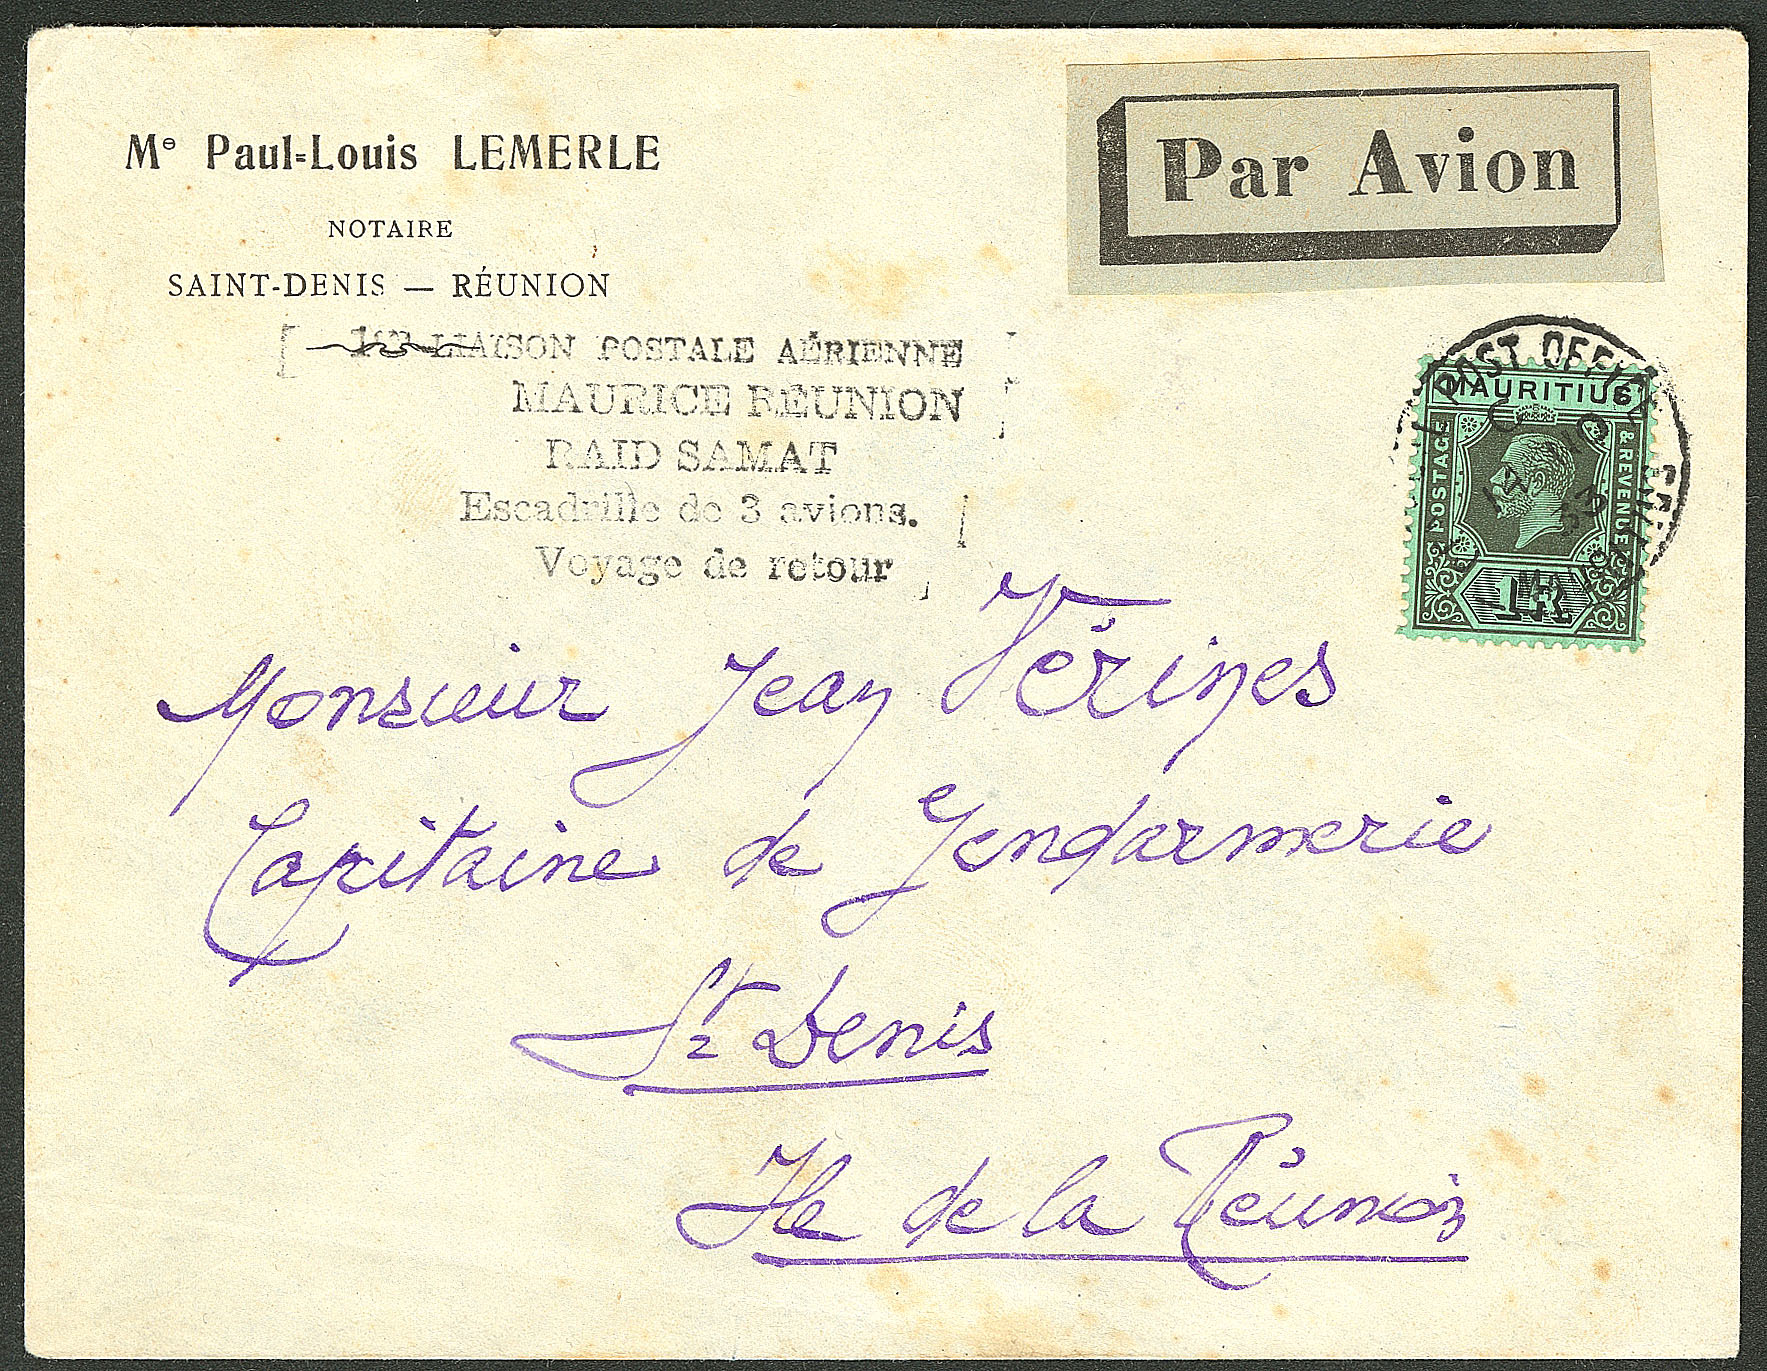 Me Paul=Louis LEMERLE
NOTAIRE
SAINT-DENIS — RÉUNION
Par Avion
LIAISON POSTALE AÉRIENNE
MAURICE RÉUNION
RAID SAMAT
Escadrille de 3 avions.
Voyage de retour
POST OFFICE
MAURITIUS
POSTAGE
& REVENUE
1R
Monsieur Jean Vérines
Capitaine de Gendarmerie
St Denis
Ile de la Réunion